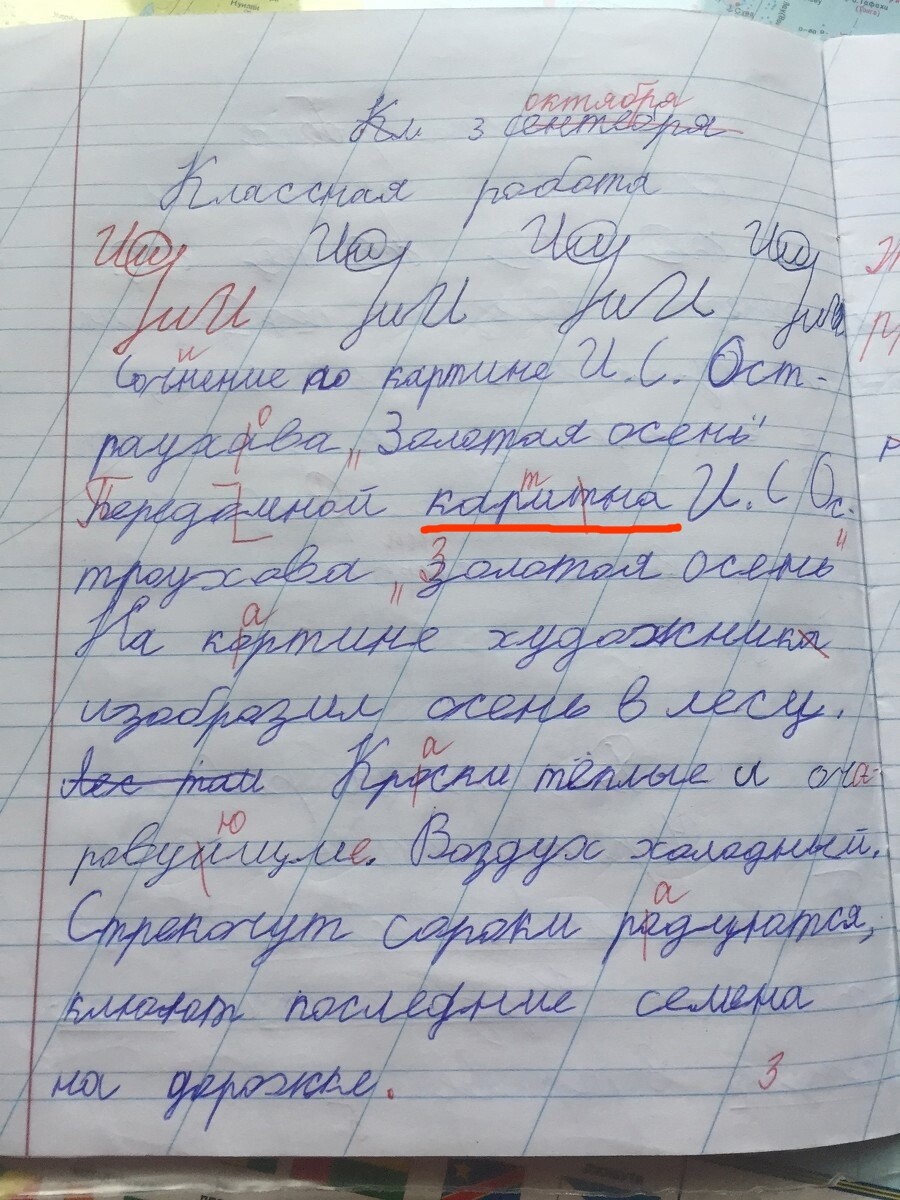 октября
Кл 3 сентября
Классная работа
Иш Иш Иш Иш
Сочнение по картине И.С. Ост-
раухава „Золотая осень"
Передамной каритна И.С Ос-
троухава „Золотая осень"
На кортине художника
изобразил осень в лесу.
Лес там Кроски тёплые и оча-
ровующие. Воздух халадный.
Стрекочут сароки родуются,
клюют последние семена
на дорожке.
3